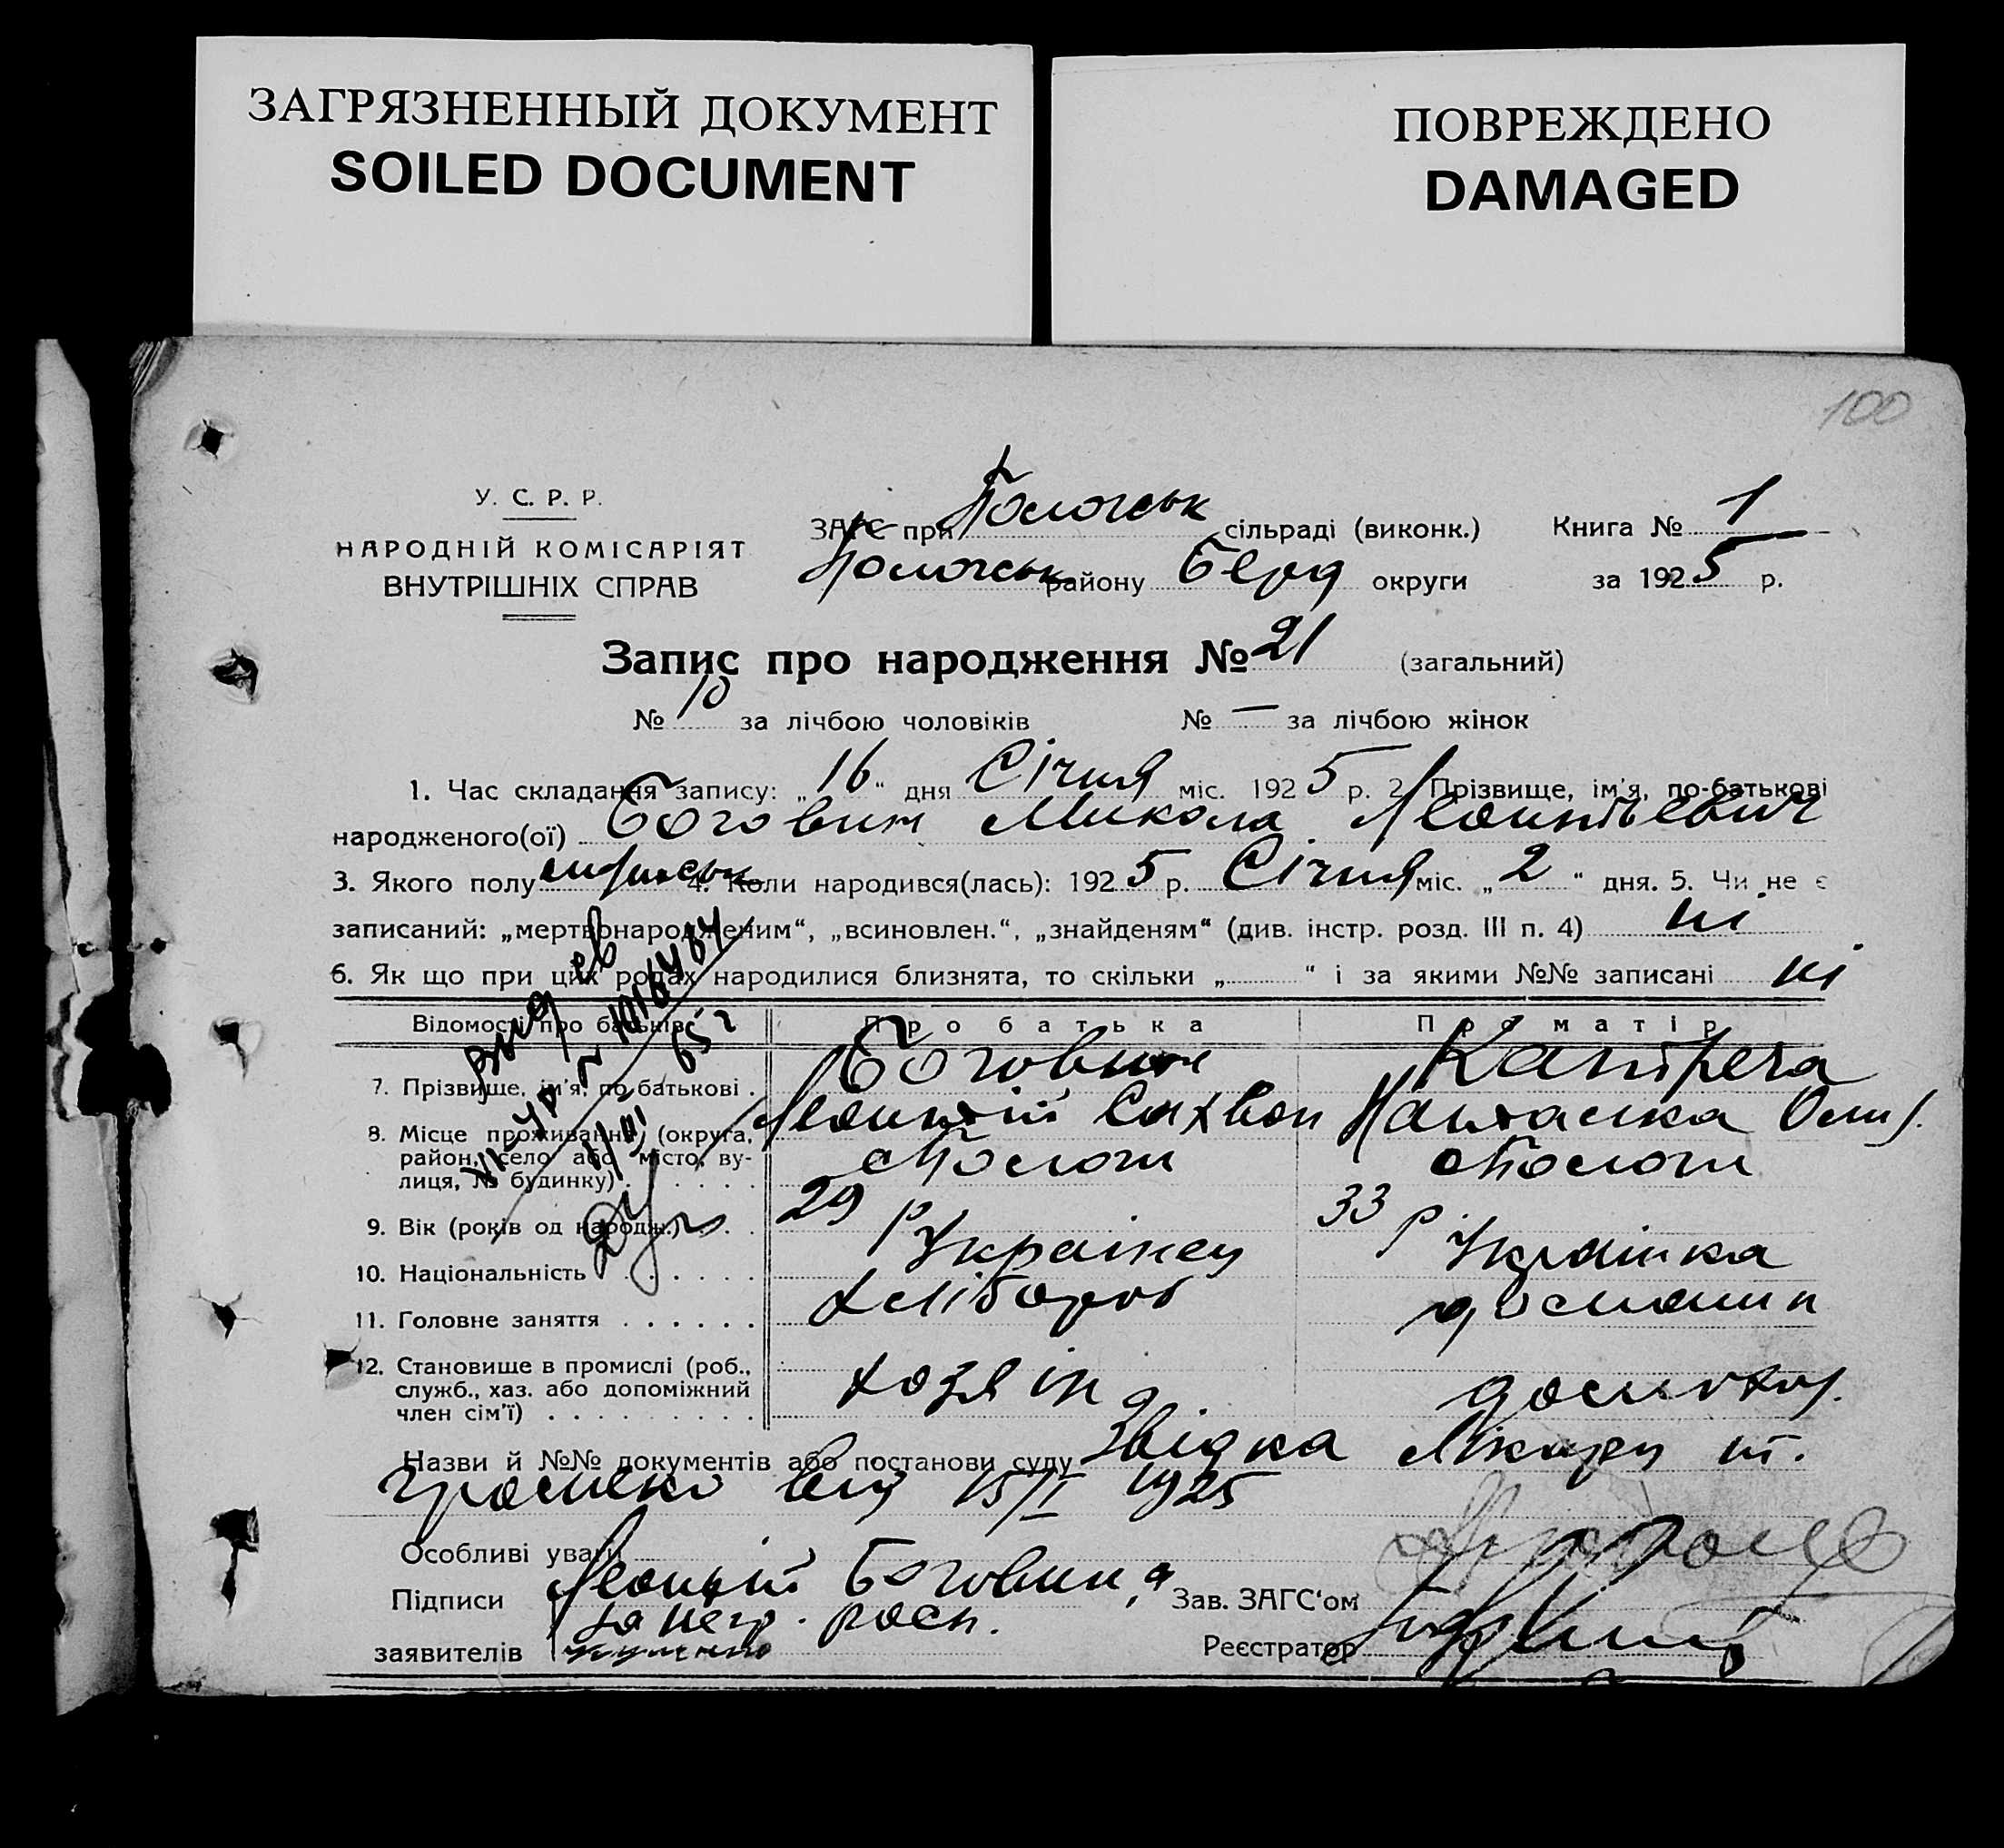 ЗАГРЯЗНЕННЫЙ ДОКУМЕНТ
SOILED DOCUMENT
ПОВРЕЖДЕНО
DAMAGED
100
У. С. Р. Р.
НАРОДНІЙ КОМІСАРІЯТ
ВНУТРІШНІХ СПРАВ
ЗАГС при Пологськ сільраді (виконк.) Книга № 1
Пологськ району Берд округи за 1925 р.
Запис про народження № 21 (загальний)
№ 10 за лічбою чоловіків № — за лічбою жінок
1. Час складання запису: „16“ дня Січня міс. 1925 р. 2. Прізвище, ім'я, по-батькові
народженого(ої) Боговин Микола Леонтьевич
3. Якого полу 4. Коли народився(лась): 1925 р. Січня міс. „2“ дня. 5. Чи не є
записаний: „мертвонародженим“, „всиновлен.“, „знайденям“ (див. інстр. розд. III п. 4) ні
6. Як що при цих родах народилися близнята, то скільки „ “ і за якими №№ записані ні
Відомості про батьків Про батька Про матір
7. Прізвище, ім'я, по батькові . Боговин
Леонтій
8. Місце проживання (округа, район, село або місто, вулиця, № будинку) . Пологи Пологи
9. Вік (років од народж.) . . . 29 р 33 р
10. Національність . . . . . . Українец Українка
11. Головне заняття . . . . . . хлібороб
12. Становище в промислі (роб., служб., хаз. або допоміжний член сім'ї) . . . . . . . . . хозяін
Назви й №№ документів або постанови суду Звідка Лікаря
від 15/I 1925
Особливі уваги
Підписи Леонтій Боговин Зав. ЗАГС'ом
заявителів Реєстратор